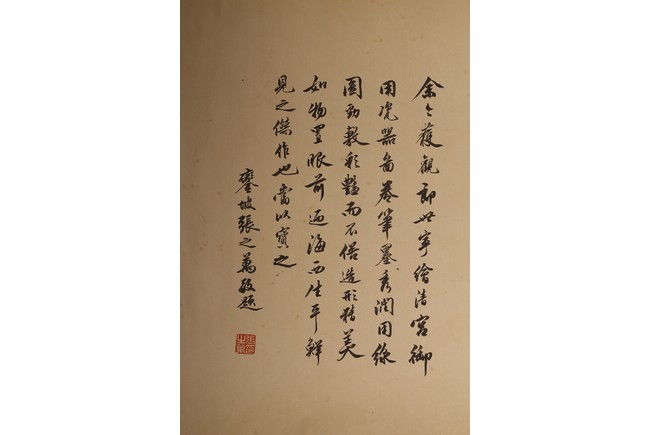 余今獲觀郎世寧繪清宮御
用瓷器畫卷筆墨秀潤用線
圓勁敷彩豔而不俗造形精美
如物置眼前迺海西生平鮮
見之傑作也當以寶之
鑾坡張之萬敬題